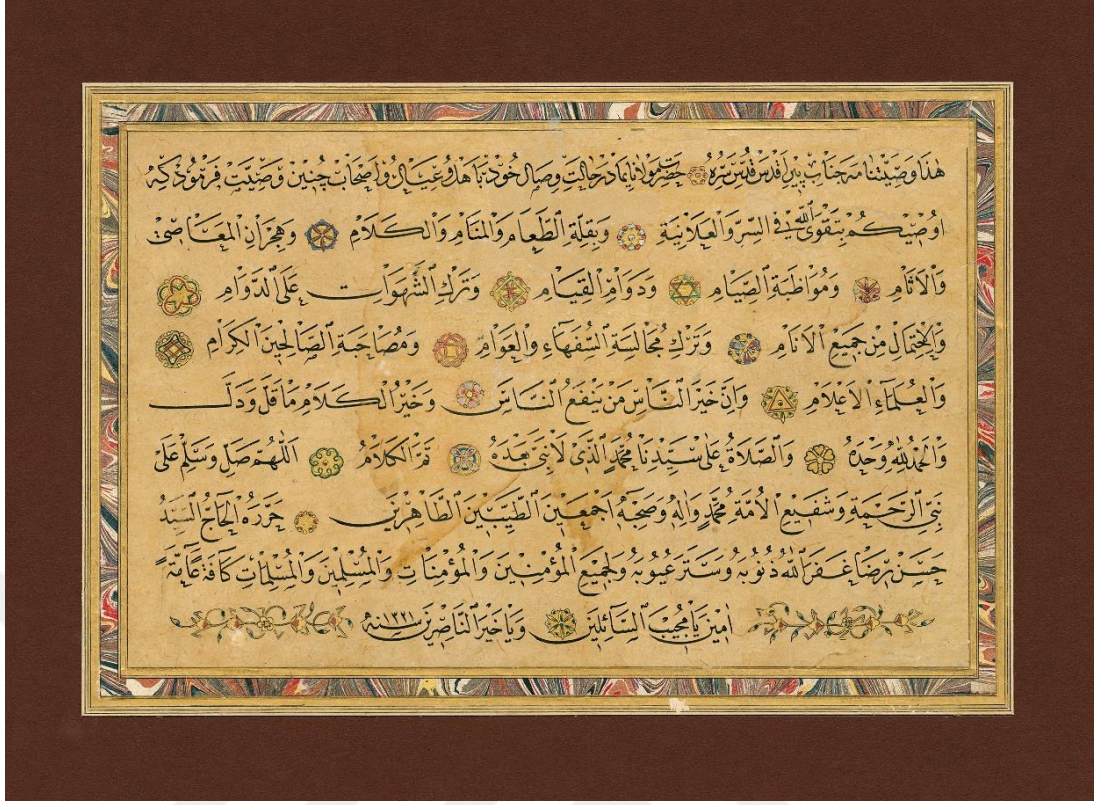 هٰذَا وَصِيَّتْنَامَهِ جَنَابِ پِيرِ اَقْدَسْ قُدِّسَ سِرُّهُ حَضْرَتِ مَوْلَانَايِمَا دَرْ حَالَتِ وِصَالِ خُودْ بَاَهْلُ وُ عَيَالُ وُ اَصْحَابْ چُنِينْ وَصِيَّتْ فَرْمُودْ كِهْ
اُوصِيكُمْ بِتَقْوَى اللّٰهِ فِى السِّرِّ وَالْعَلَانِيَةِ وَبِقِلَّةِ الطَّعَامِ وَالْمَنَامِ وَالْكَلَامِ وَهِجْرَانِ الْمَعَاصِى
وَالْاٰثَامِ وَمُوَاظَبَةِ الصِّيَامِ وَدَوَامِ الْقِيَامِ وَتَرْكِ الشَّهَوَاتِ عَلَى الدَّوَامِ
وَالْاِحْتِمَالِ مِنْ جَمِيعِ الْاَنَامِ وَتَرْكِ مُجَالَسَةِ السُّفَهَاءِ وَالْعَوَامِ وَمُصَاحَبَةِ الصَّالِحِينَ الْكِرَامِ
وَالْعُلَمَاءِ الْاَعْلَامِ وَاِنَّ خَيْرَ النَّاسِ مَنْ يَنْفَعُ النَّاسَ وَخَيْرُ الْكَلَامِ مَا قَلَّ وَدَلَّ
وَالْحَمْدُ لِلّٰهِ وَحْدَهُ وَالصَّلَاةُ عَلٰى سَيِّدِنَا مُحَمَّدٍ الَّذِى لَا نَبِىَّ بَعْدَهُ تَمَّ الْكَلَامُ اَللّٰهُمَّ صَلِّ وَسَلِّمْ عَلٰى
نَبِىِّ الرَّحْمَةِ وَشَفِيعِ الْاُمَّةِ مُحَمَّدٍ وَاٰلِهِ وَصَحْبِهِ اَجْمَعِينَ الطَّيِّبِينَ الطَّاهِرِينَ حَرَّرَهُ الْحَاجُّ السَّيِّدُ
حَسَنْ رِضَا غَفَرَ اللّٰهُ ذُنُوبَهُ وَسَتَرَ عُيُوبَهُ وَلِجَمِيعِ الْمُؤْمِنِينَ وَالْمُؤْمِنَاتِ وَالْمُسْلِمِينَ وَالْمُسْلِمَاتِ كَافَّةً عَامَّةً
اٰمِينَ يَا مُجِيبَ السَّائِلِينَ وَيَا خَيْرَ النَّاصِرِينَ سنه ١٣٣١